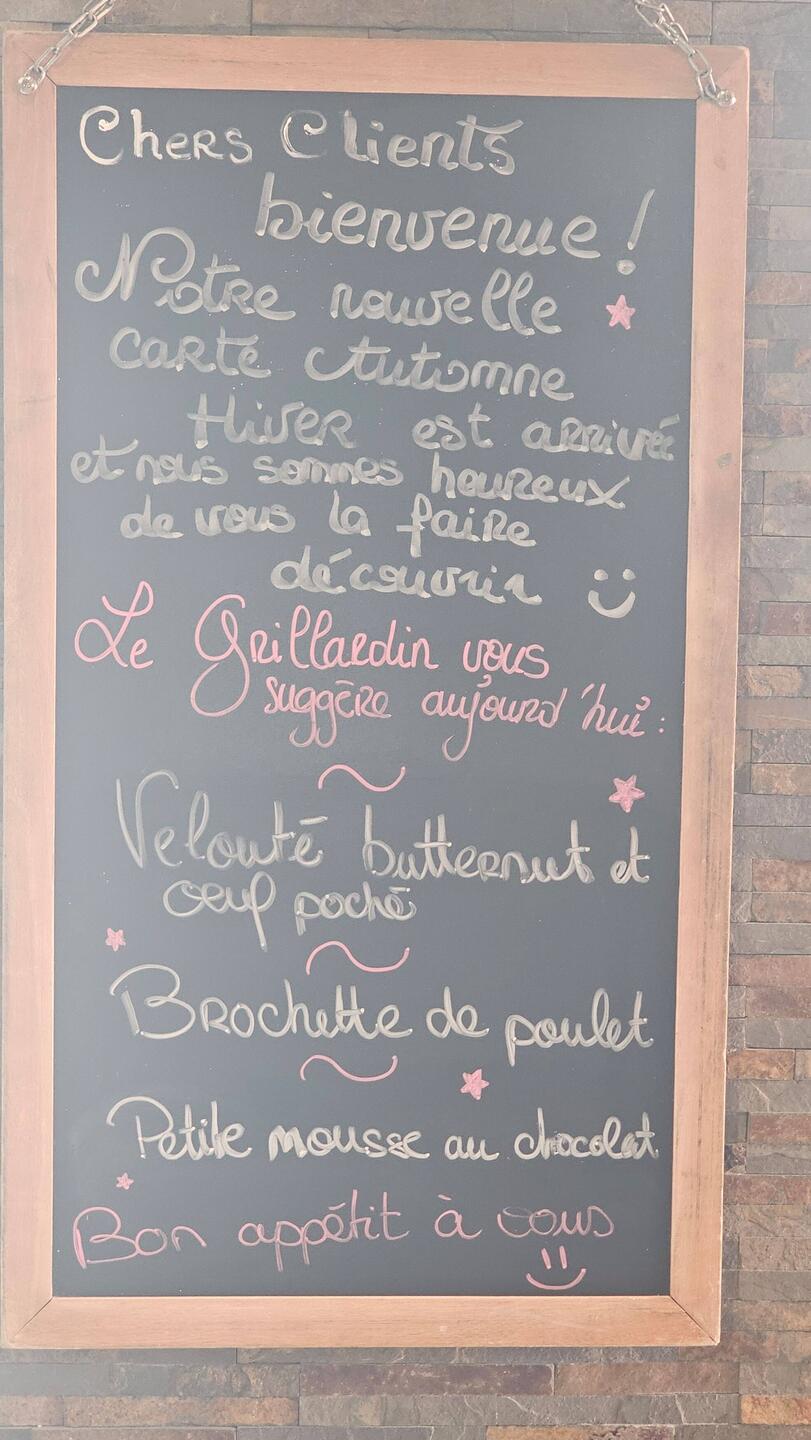 Chers Clients
bienvenue !
Notre nouvelle
carte Automne
Hiver est arrivée
et nous sommes heureux
de vous la faire
découvrir
Le Grillardin vous
suggère aujourd'hui :
Velouté butternut et
oeuf poché
Brochette de poulet
Petite mousse au chocolat
Bon appétit à vous